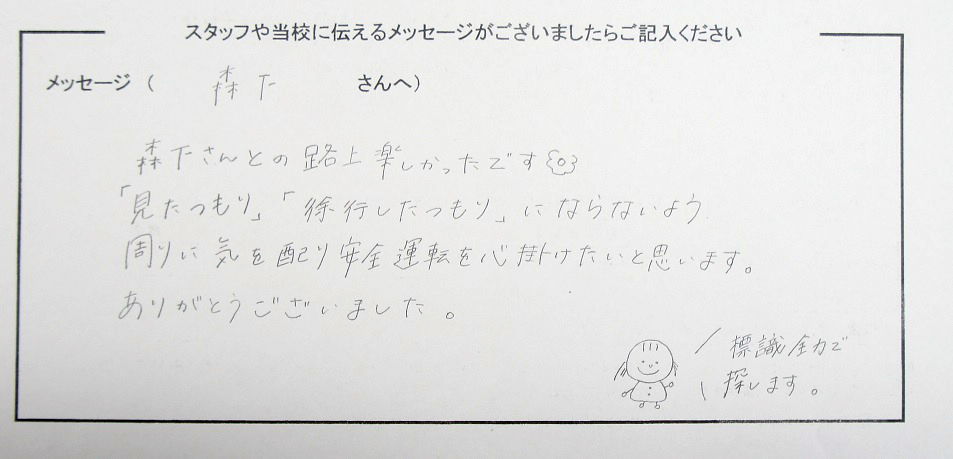 スタッフや当校に伝えるメッセージがございましたらご記入ください
メッセージ（ 森下 さんへ）
森下さんとの路上楽しかったです
「見たつもり」「徐行したつもり」にならないよう
周りに気を配り安全運転を心掛けたいと思います。
ありがとうございました。
標識全力で
探します。